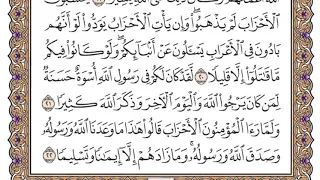 ٱلْأَحْزَابَ لَمْ يَذْهَبُوا۟ ۖ وَإِن يَأْتِ ٱلْأَحْزَابُ يَوَدُّوا۟ لَوْ أَنَّهُم
بَادُونَ فِى ٱلْأَعْرَابِ يَسْـَٔلُونَ عَنْ أَنۢبَآئِكُمْ ۖ وَلَوْ كَانُوا۟ فِيكُم
مَّا قَٰتَلُوٓا۟ إِلَّا قَلِيلًا ٢٠ لَّقَدْ كَانَ لَكُمْ فِى رَسُولِ ٱللَّهِ أُسْوَةٌ حَسَنَةٌ
لِّمَن كَانَ يَرْجُوا۟ ٱللَّهَ وَٱلْيَوْمَ ٱلْـَٔاخِرَ وَذَكَرَ ٱللَّهَ كَثِيرًا ٢١
وَلَمَّا رَءَا ٱلْمُؤْمِنُونَ ٱلْأَحْزَابَ قَالُوا۟ هَٰذَا مَا وَعَدَنَا ٱللَّهُ وَرَسُولُهُۥ
وَصَدَقَ ٱللَّهُ وَرَسُولُهُۥ ۚ وَمَا زَادَهُمْ إِلَّآ إِيمَٰنًا وَتَسْلِيمًا ٢٢